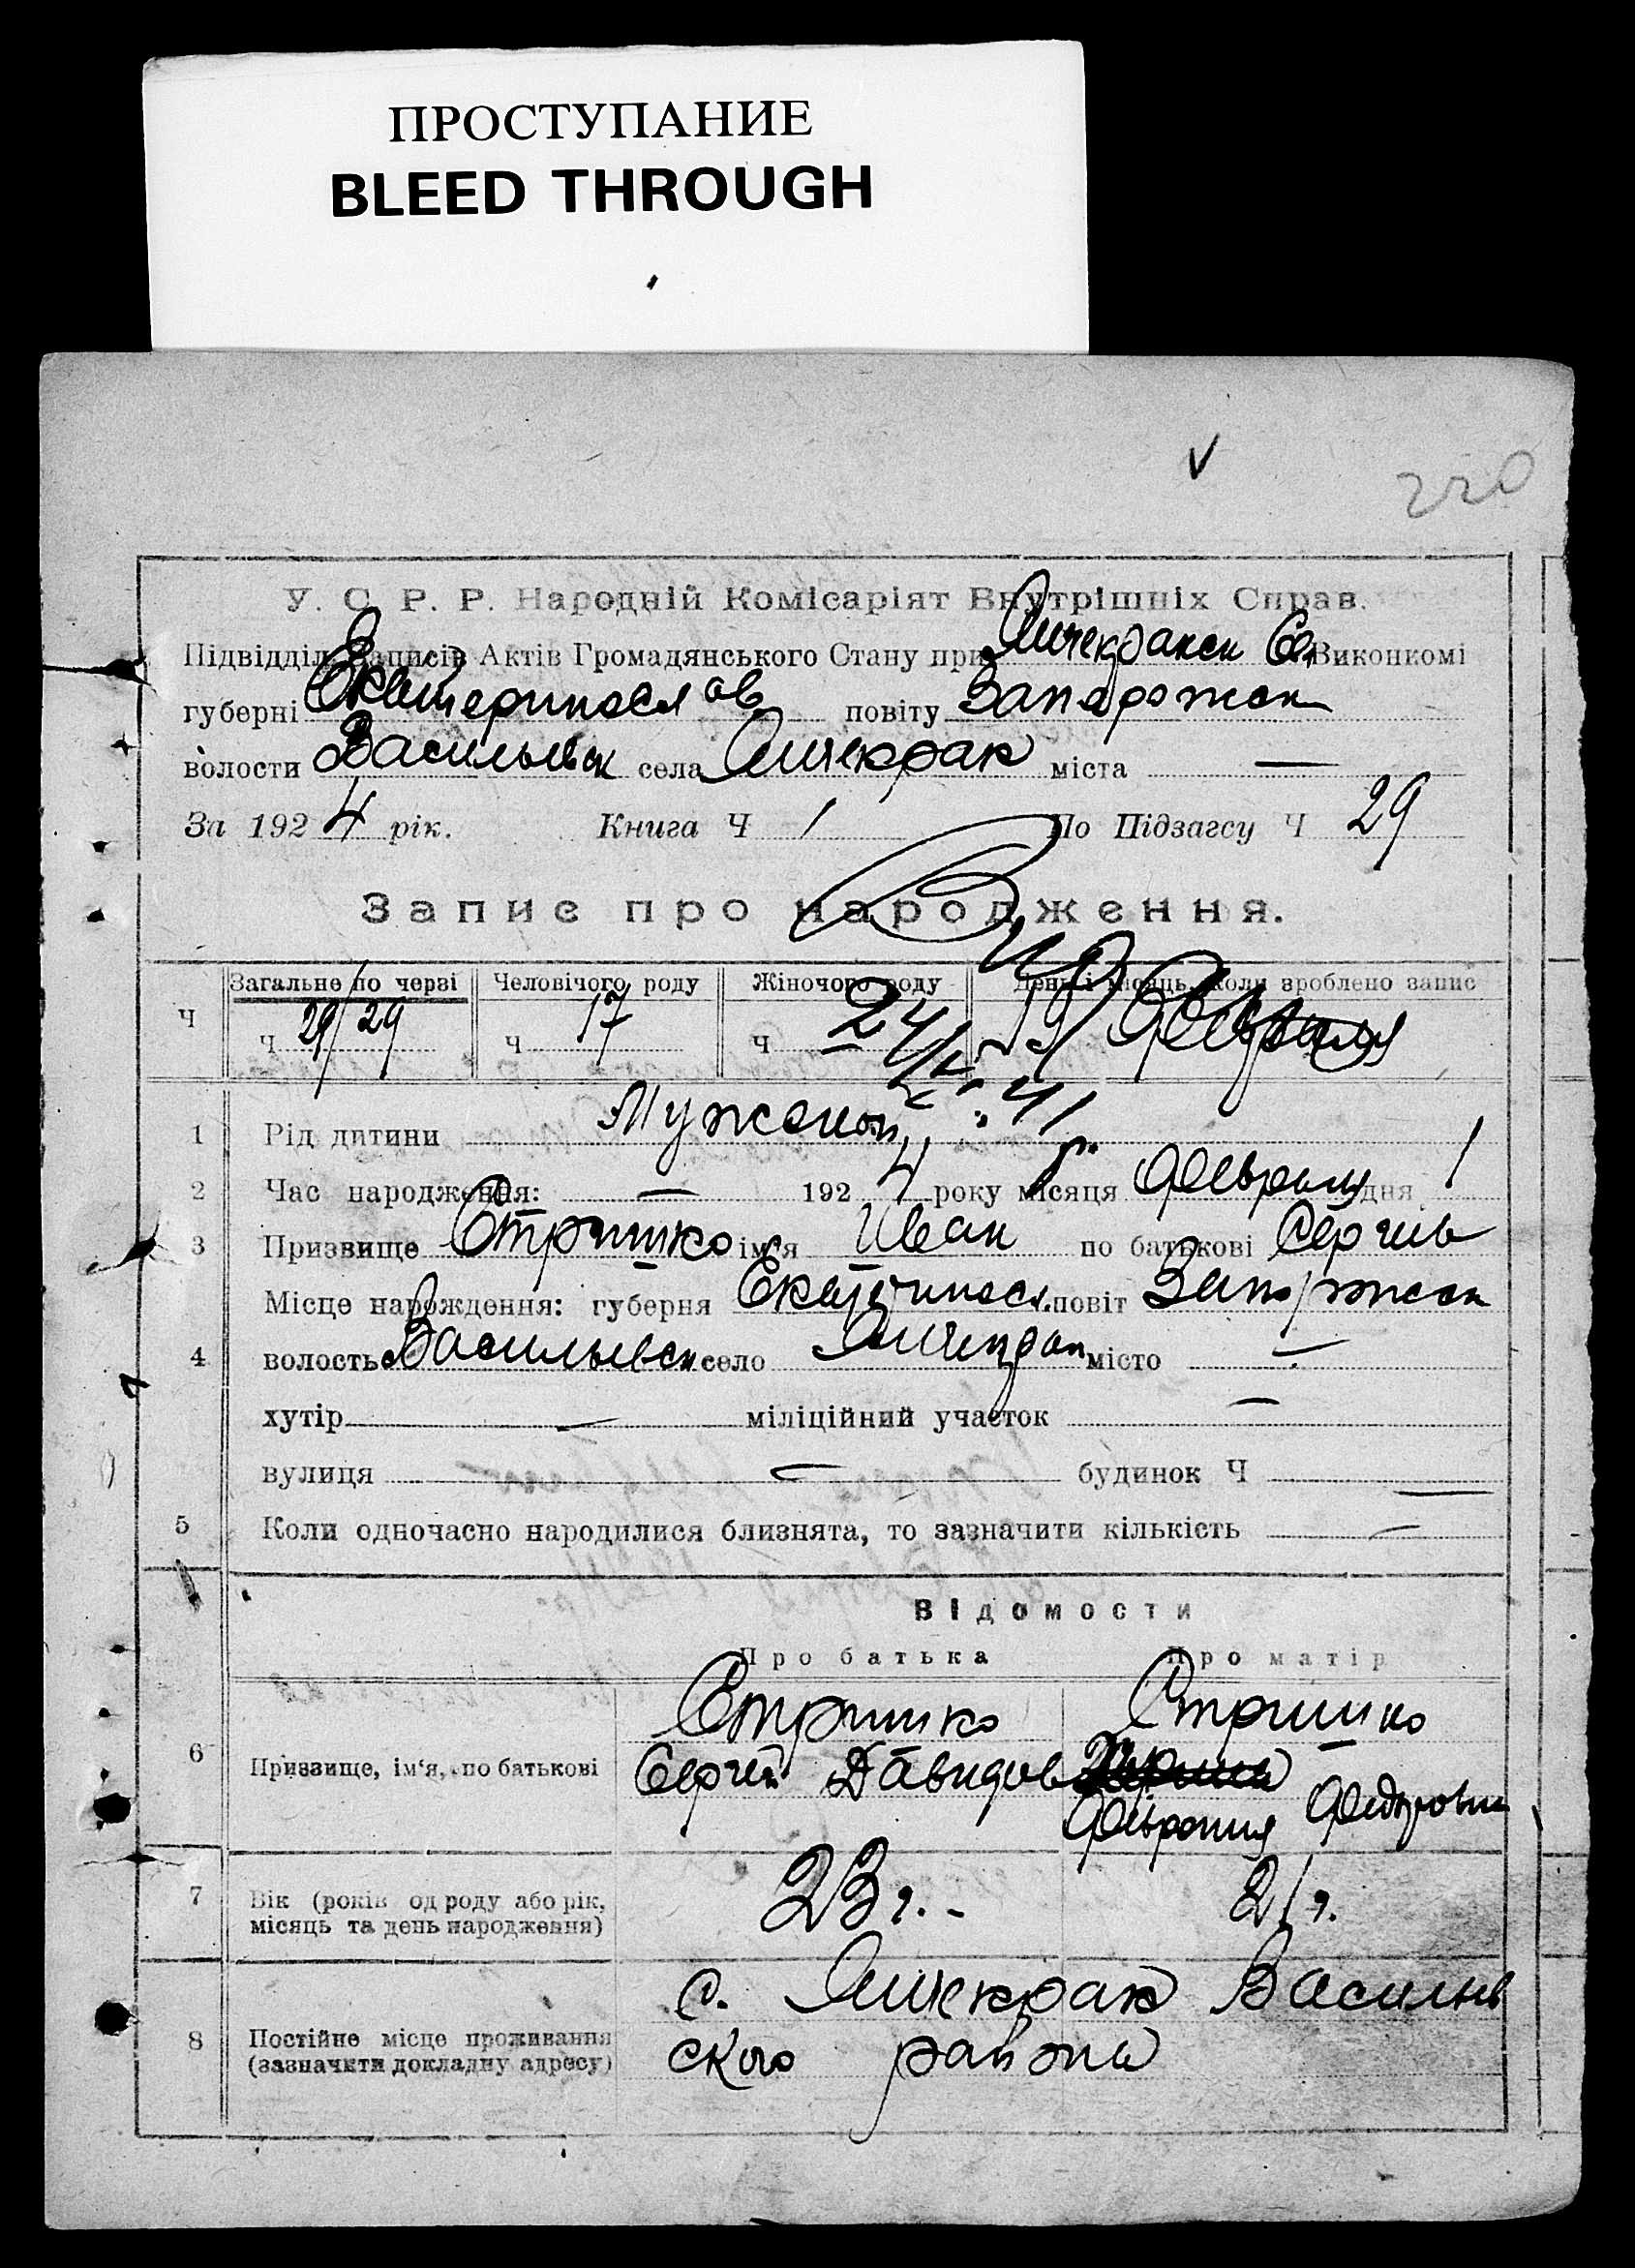 ПРОСТУПАНИЕ
BLEED THROUGH
220
У. С. Р. Р. Народній Комісаріят Внутрішніх Справ.
Підвідділ Записів Актів Громадянського Стану при Янчекракск Сел Виконкомі
губерні Екатеринослав повіту Запорожск
волости Васильевск села Янчекрак міста —
За 1924 рік. Книга Ч 1 По Підзагсу Ч 29
Запис про народження.
Ч Загальне по черзі Человічого роду Жіночого роду День і місяць, коли зроблено запис
Ч 29/29 Ч 17 Ч 19 Февраля
24/V-41 р.
1 Рід дитини Мужской
2 Час народження: — 1924 року місяця Февраля дня 1
3 Призвище Стришко ім'я Иван по батькові Сергеев
Місце нарождення: губерня Екатериносл. повіт Запорожск
4 волость Васильевск село Янчекрак місто —
хутір — міліційний участок —
вулиця — будинок Ч —
5 Коли одночасно народилися близнята, то зазначити кількість —
Відомости
Про батька Про матір
Стришко Стришко
6 Призвище, ім'я, по батькові Сергей Давидов
Феврония Федоровна
7 Вік (років од роду або рік, місяць та день народження) 23 г. - 21 г.
8 Постійне місце проживання (зазначити докладну адресу) с. Янчекрак Васильев
ского района